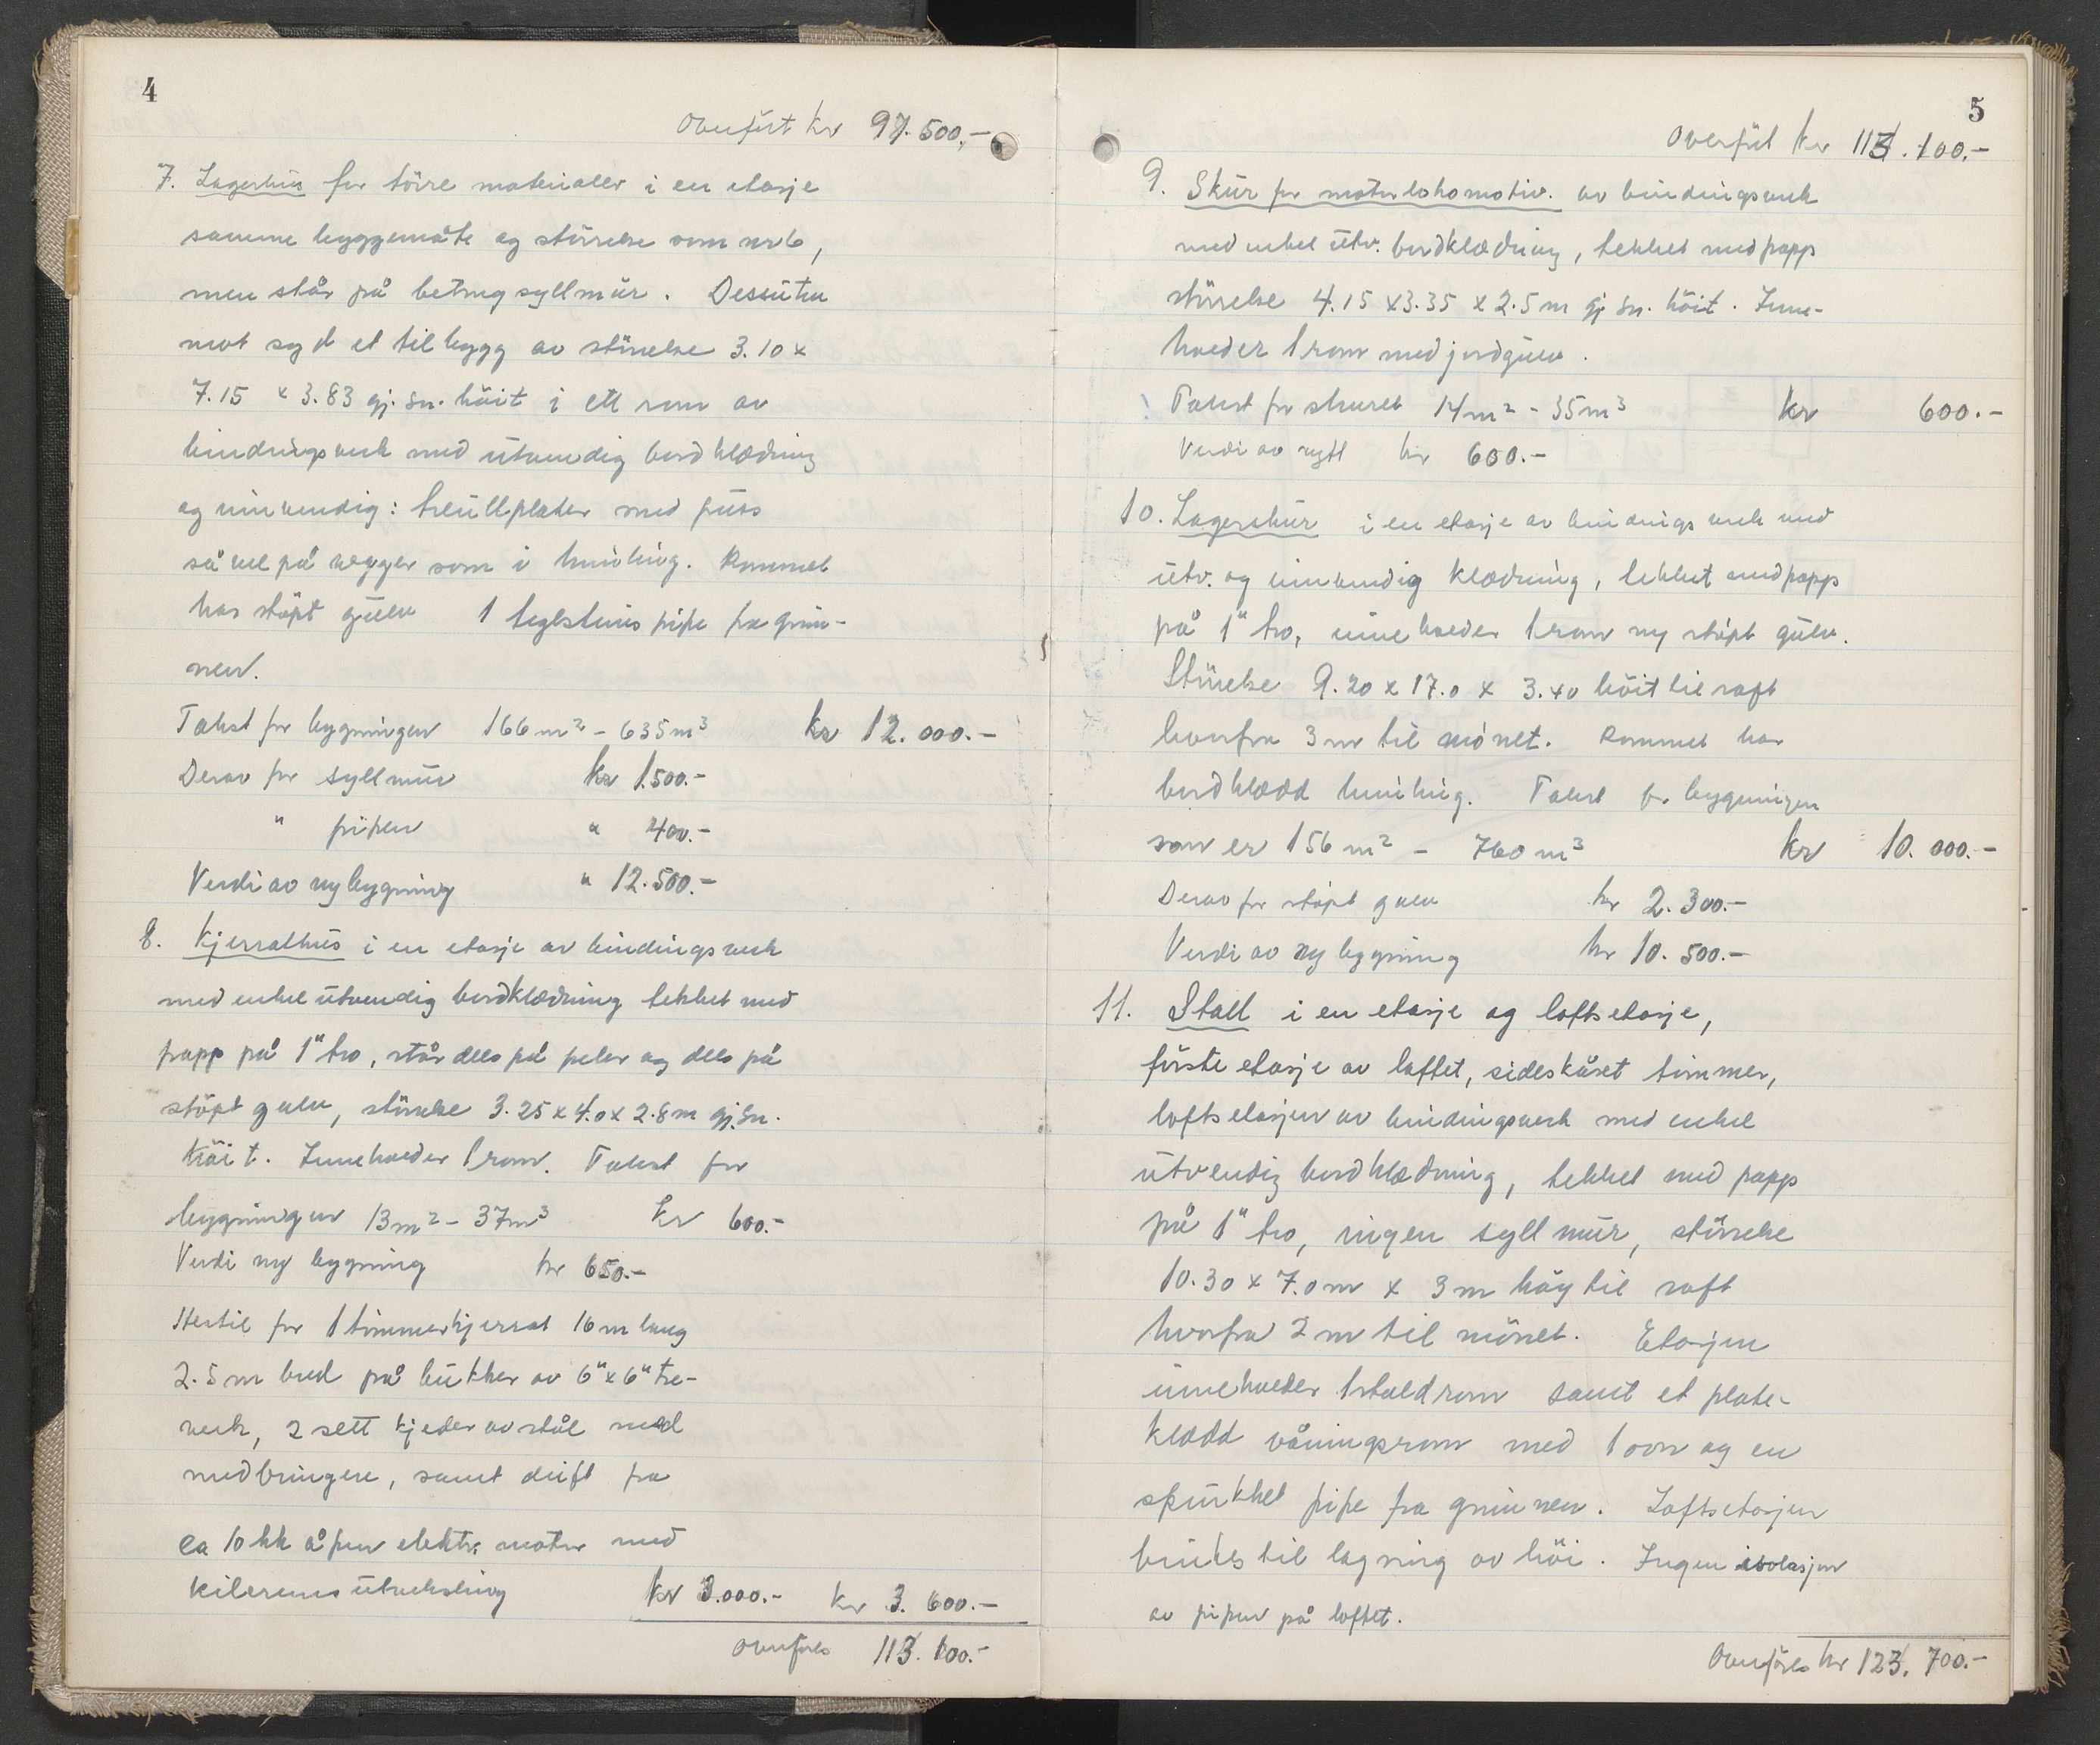 4
Overført kr 97.500,-
7. Lagerhus for törre materialer i en etasje
samme byggemåte og störrelse som nr 6,
men står på betongsyllmür. Dessüten
mot syd et tilbygg av störrelse 3.10 x
7.15 x 3.83 gj.sn. höit i ett rom av
bindingsverk med ütvendig bordklædning
og innvendig: treüllplater med püss
så vel på vegger som i himling. Rommet
har stöpt gülv 1 teglsteins pipe fra grün-
nen.
Takst for bygningen 166 m² - 635 m³ kr 12.000.-
Derav for syllmür kr 1.500.-
" pipen " 400.-
Verdi av ny bygning " 12.500.-
8. Kjerrathüs i en etasje av bindingsverk
med enkel ütvendig bordklædning tekket med
papp på 1" tro, står dels på peler og dels på
stöpt gulv, störrelse 3.25 x 4.0 x 2.8 m gj.sn.
höit. Inneholder 1 rom. Takst for
bygningen 13 m² - 37 m³ kr 600.-
Verdi ny bygning kr 650.-
Hertil for 1 tömmerkjerrat 16 m lang
2.5 m bred på bükker av 6" x 6" tre-
verk, 2 sett kjeder av stål med
medbringere, samt drift fra
ca 10 hk åpen elektr. motor med
kileremsütveksling kr 3.000.- kr 3.600.-
Overføres 113.100.-
5
Overfört kr 113.100.-
9. Skür for motorlokomotiv. av bindingsverk
med enkel ütv. bordklædning, tekket med papp
störrelse 4.15 x 3.35 x 2.5 m gj.sn. höit. Inne-
holder 1 rom med jordgülv.
Takst for skuret 14 m² - 35 m³ kr 600.-
Verdi av nytt kr 600.-
10. Lagerskür i en etasje av bindingsverk med
ütv. og innvendig klædning, tekket med papp
på 1" tro, inneholder 1 rom og stöpt gülv.
Störrelse 9.20 x 17.0 x 3.40 höit til raft
hvorfra 3 m til mönet. Rommet har
bordklædd himling. Takst for bygningen
som er 156 m² - 760 m³ kr 10.000.-
Derav for stöpt gulv kr 2.300.-
Verdi av ny bygning kr 10.500.-
11. Stall i en etasje og loftsetasje,
förste etasje av laftet, sideskåret tömmer,
loftsetasjen av bindingsverk med enkel
ütvendig bordklædning, tekket med papp
på 1" tro, ingen syllmür, störrelse
10.30 x 7.0 m x 3 m höy til raft
hvorfra 2 m til mönet. Etasjen
inneholder 1 staldrom samt et plate-
klædd våningsrom med 1 ovn og en
spükket pipe fra grünnen. Loftsetasjen
brükes til lagring av höi. Ingen isolasjon
av pipen på loftet.
Overföres kr 123.700.-